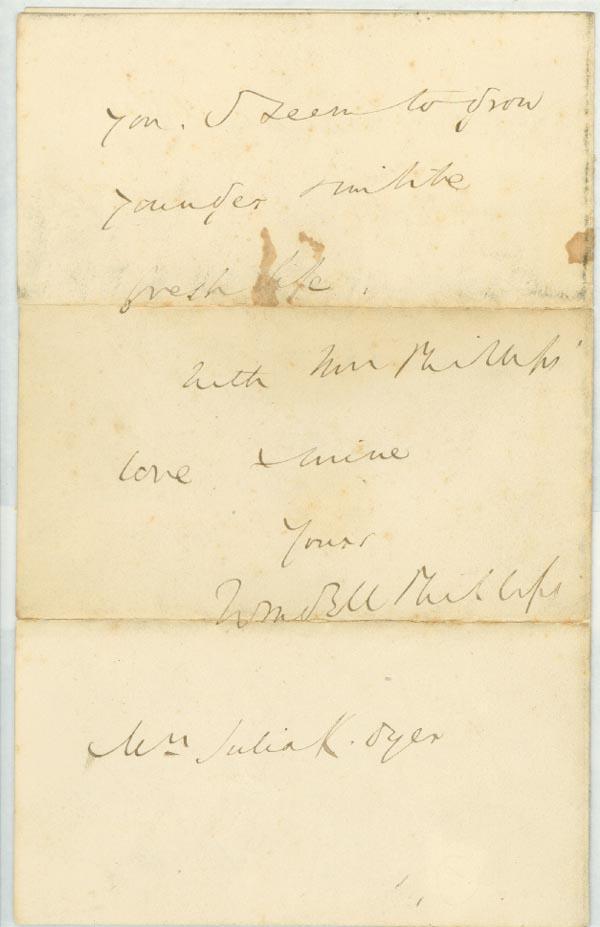 you. I seem to grow
younger & imbibe
fresh life.
With Mrs Phillips'
love & mine
Yours
Wendell Phillips
Mrs Julia K. Dyer